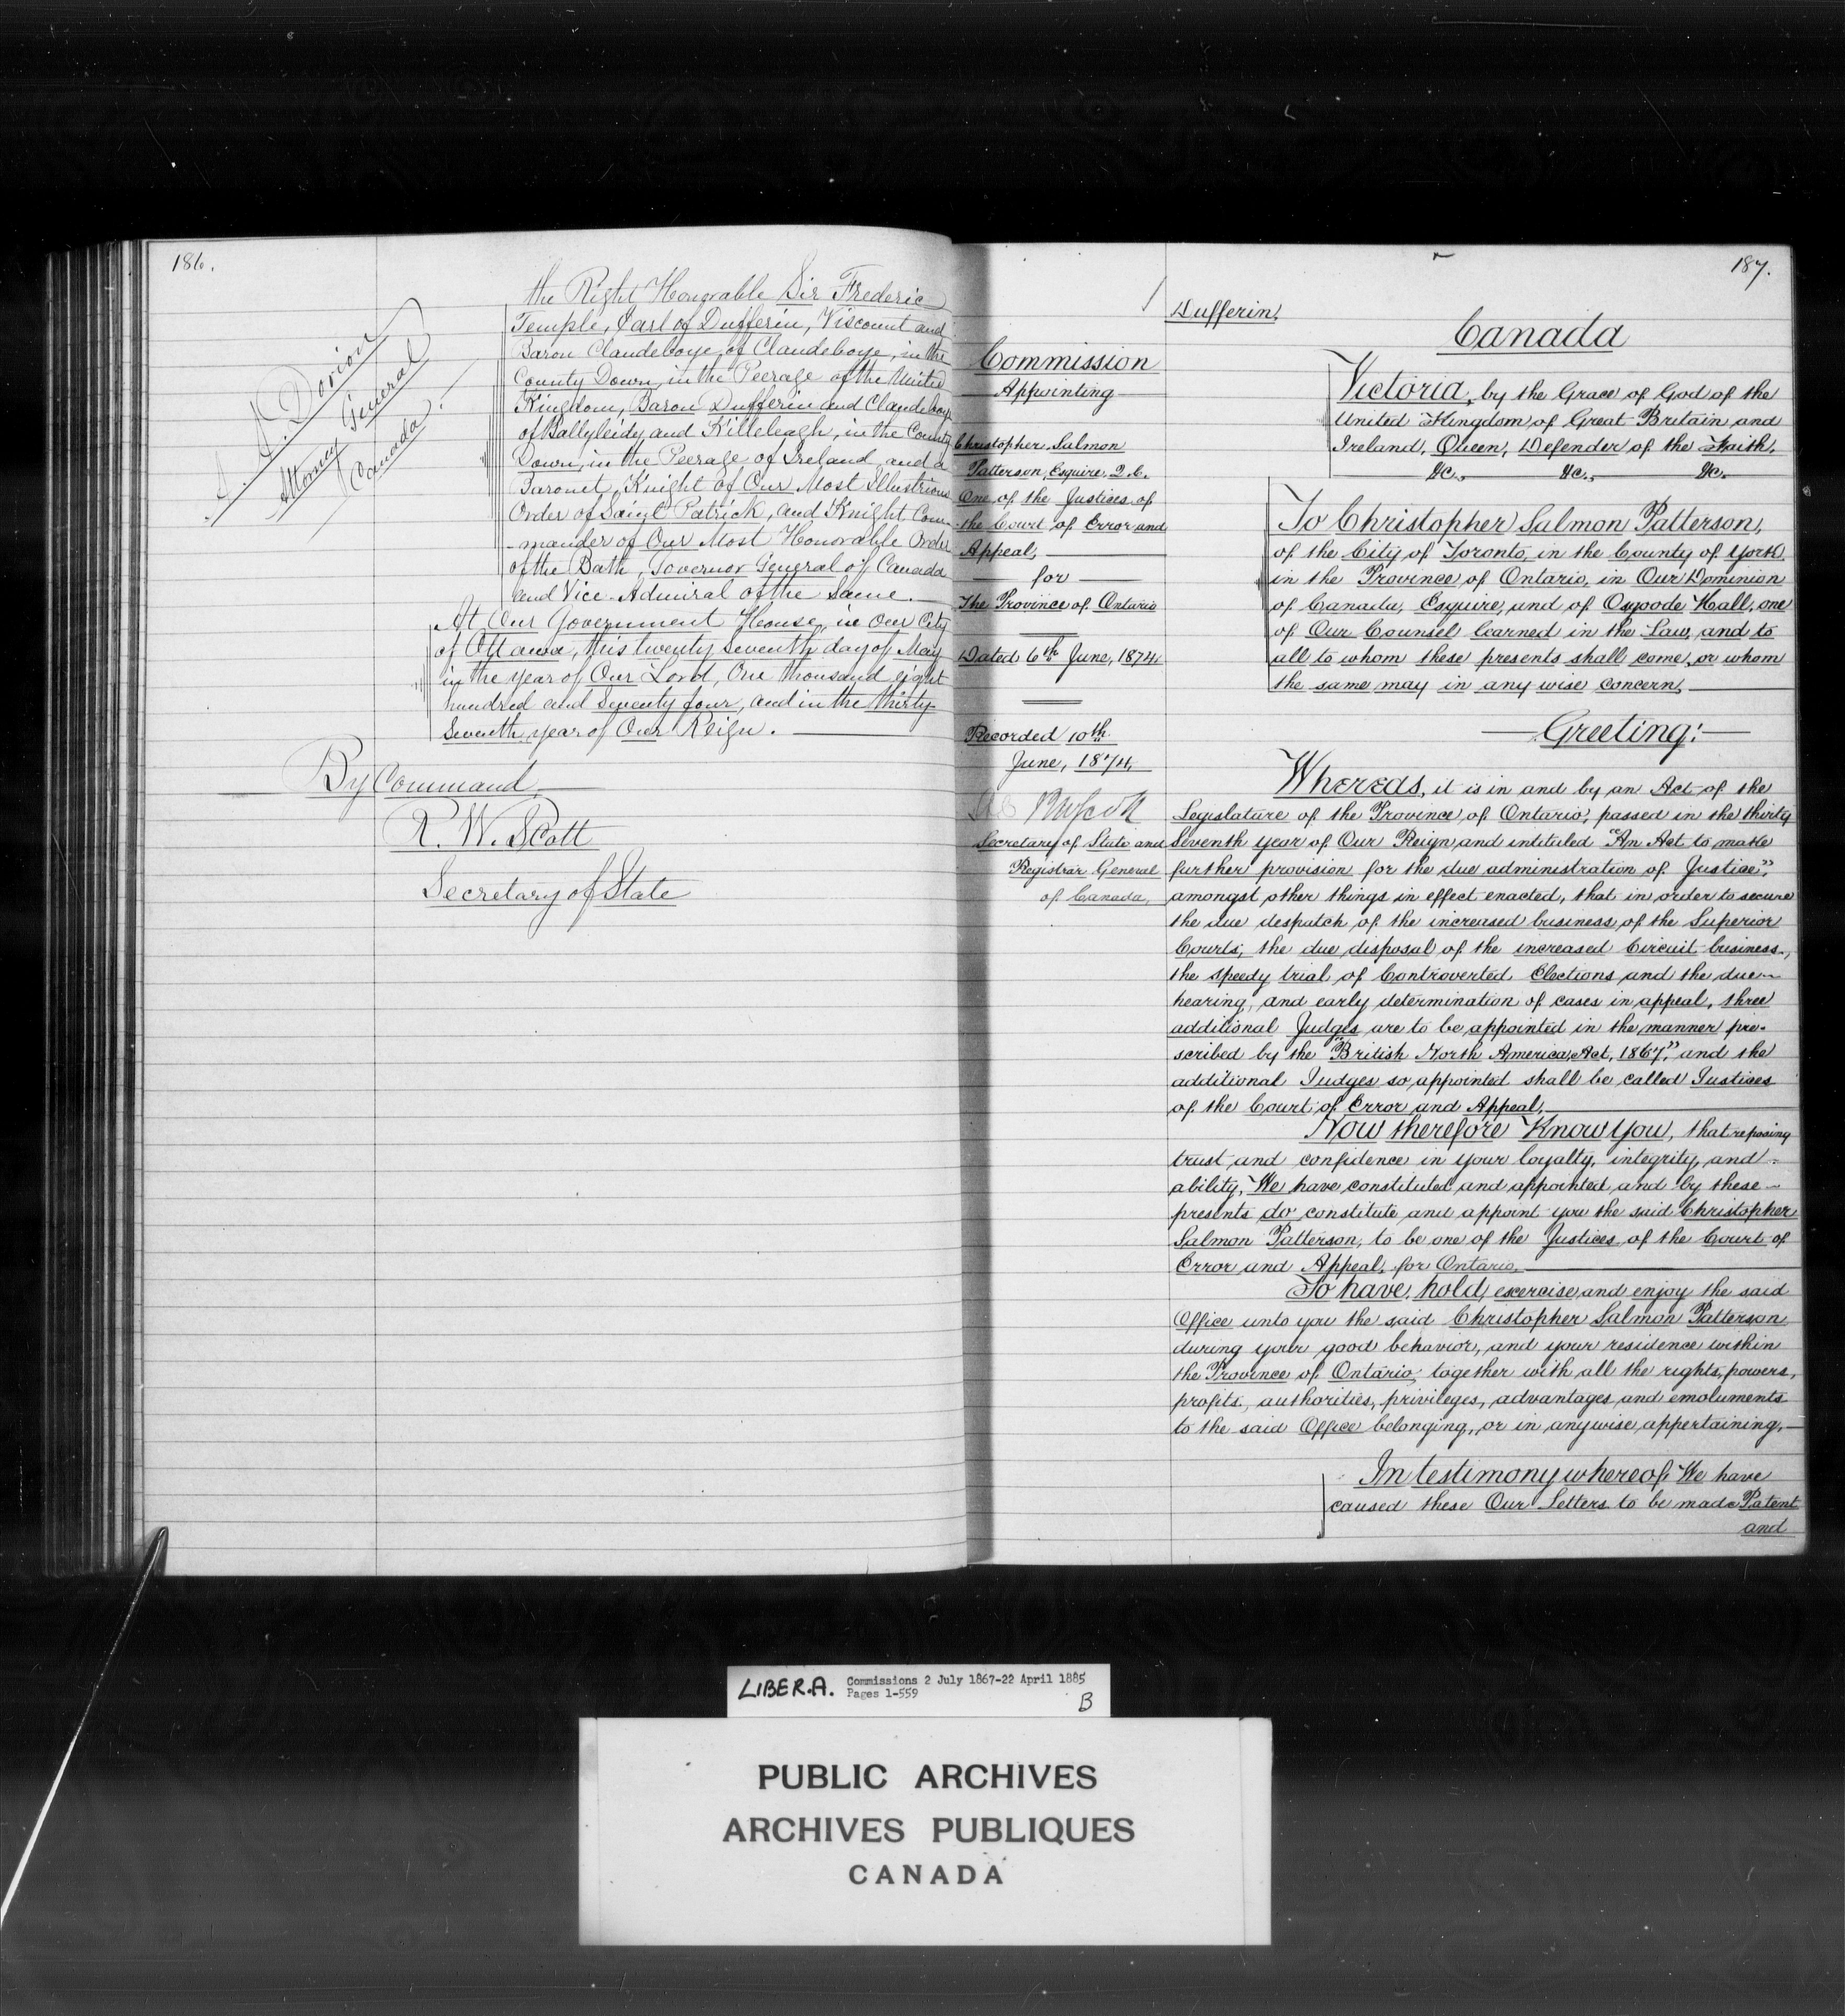 186.
A. A. Dorion
Attorney General
Canada.
the Right Honorable Sir Frederic
Temple, Earl of Dufferin, Viscount and
Baron Clandeboye, of Clandeboye, in the
County Down, in the Peerage of the United
Kingdom, Baron Dufferin and Clandeboye
of Ballyleidy and Killeleagh, in the County
Down, in the Peerage of Ireland and a
Baronet, Knight of Our Most Illustrious
Order of Saint Patrick, and Knight Com-
-mander of Our Most Honorable Order
of the Bath, Governor General of Canada
and Vice-Admiral of the Same.
At Our Government House, in Our City
of Ottawa, this twenty seventh day of May
in the year of Our Lord, One thousand eight
hundred and Seventy four, and in the thirty
Seventh year of Our Reign.
By Command
R. W. Scott
Secretary of State
187.
Dufferin,
Commission
Appointing
Christopher Salmon
Patterson, Esquire, Q.C.
One of the Justices of
the Court of Error and
Appeal,
for
The Province of Ontario
Dated 6th June, 1874.
Recorded 10th
June, 1874,
RWScott
Secretary of State and
Registrar General
of Canada,
Canada
Victoria, by the Grace of God of the
United Kingdom of Great Britain and
Ireland, Queen, Defender of the Faith,
&c., &c., &c.
To Christopher Salmon Patterson,
of the City of Toronto, in the County of York
in the Province of Ontario, in Our Dominion
of Canada, Esquire, and of Osgoode Hall, one
of Our Counsel learned in the Law, and to
all to whom these presents shall come, or whom
the same may in any wise concern,
Greeting:
Whereas, it is in and by an Act of the
Legislature of the Province of Ontario, passed in the thirty
Seventh year of Our Reign, and intituled "An Act to make
further provision for the due administration of Justice",
amongst other things in effect enacted, that in order to secure
the due despatch of the increased business of the Superior
Courts, the due disposal of the increased Circuit business,
the speedy trial of Controverted Elections and the due
hearing, and early determination of cases in appeal, three
additional Judges are to be appointed in the manner pre-
scribed by the "British North America Act, 1867," and the
additional Judges so appointed shall be called Justices
of the Court of Error and Appeal,
Now therefore Know You, that reposing
trust and confidence in your loyalty, integrity, and
ability, We have constituted and appointed and by these
presents do constitute and appoint you the said Christopher
Salmon Patterson, to be one of the Justices of the Court of
Error and Appeal, for Ontario,
To have, hold, exercise and enjoy the said
Office unto you the said Christopher Salmon Patterson
during your good behavior, and your residence within
the Province of Ontario, together with all the rights, powers,
profits, authorities, privileges, advantages and emoluments
to the said Office belonging, or in anywise appertaining,
In testimony whereof, We have
caused these Our Letters to be made Patent
and
LIBER.A. Commissions 2 July 1867-22 April 1885
Pages 1-559
B
PUBLIC ARCHIVES
ARCHIVES PUBLIQUES
CANADA